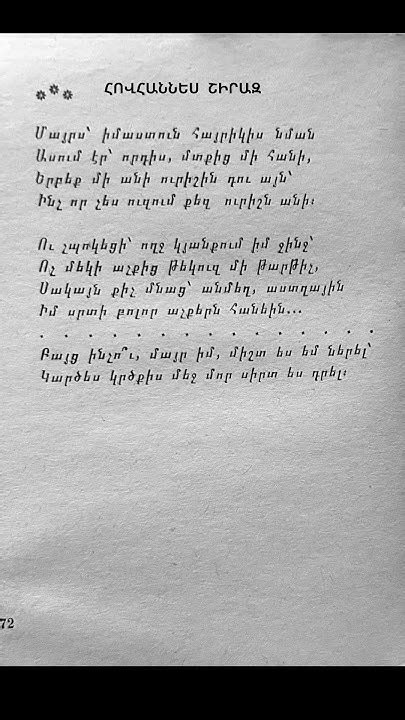 ՀՈՎՀԱՆՆԵՍ ՇԻՐԱԶ
* * *
Մայրս՝ իմաստուն հայրիկիս նման
Ասում էր՝ որդիս, մտքից մի հանի,
Երբեք մի անի ուրիշին դու այն՝
Ինչ որ չես ուզում քեզ ուրիշն անի։
Ու չպոկեցի՝ ողջ կյանքում իմ ջինջ՝
Ոչ մեկի աչքից թեկուզ մի թարթիչ,
Սակայն քիչ մնաց՝ անմեղ, աստղային
Իմ սրտի բոլոր աչքերն հանեին...
. . . . . . . . . . . . . . . .
Բայց ինչո՞ւ, մայր իմ, միշտ ես եմ ներել՝
Կարծես կրծքիս մեջ մոր սիրտ ես դրել։
72